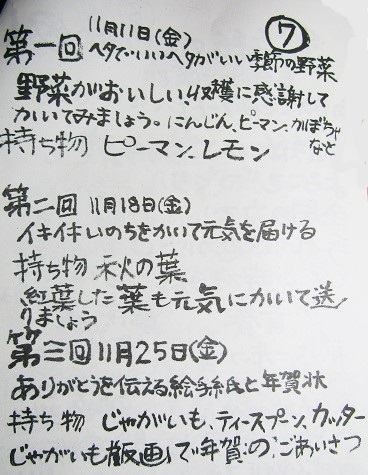 ⑦
第一回 11月11日(金)
ヘタでいいヘタがいい季節の野菜
野菜がおいしい、収穫に感謝して
かいてみましょう。にんじん、ピーマン、かぼちゃ
など
持ち物 ピーマン、レモン
第二回 11月18日(金)
イキイキいのちをかいて元気を届ける
持ち物 秋の葉
紅葉した葉も元気にかいて送
りましょう
第三回 11月25日(金)
ありがとうを伝える絵手紙と年賀状
持ち物 じゃがいも、ティースプーン、カッター
じゃがいも版画で年賀のごあいさつ